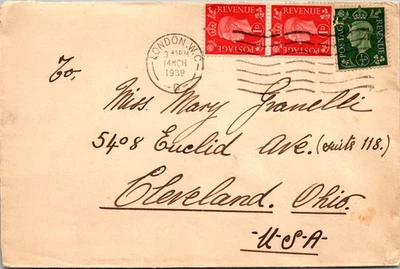 REVENUE
POSTAGE
REVENUE
POSTAGE
REVENUE
POSTAGE
LONDON. W.C.
14 MCH
1939
To,
Miss. Mary Granelli
5408 Euclid Ave. (suite 118.)
Cleveland. Ohio.
-U-S-A-